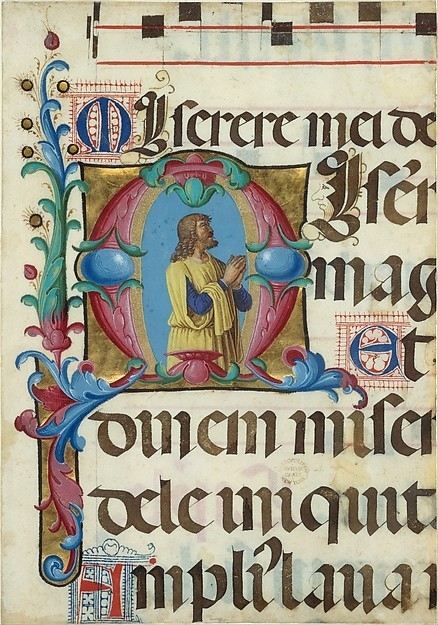 MIserere mei de
MIser
mag
et
dinem miser
dele iniquit
Ampliꝰ laua